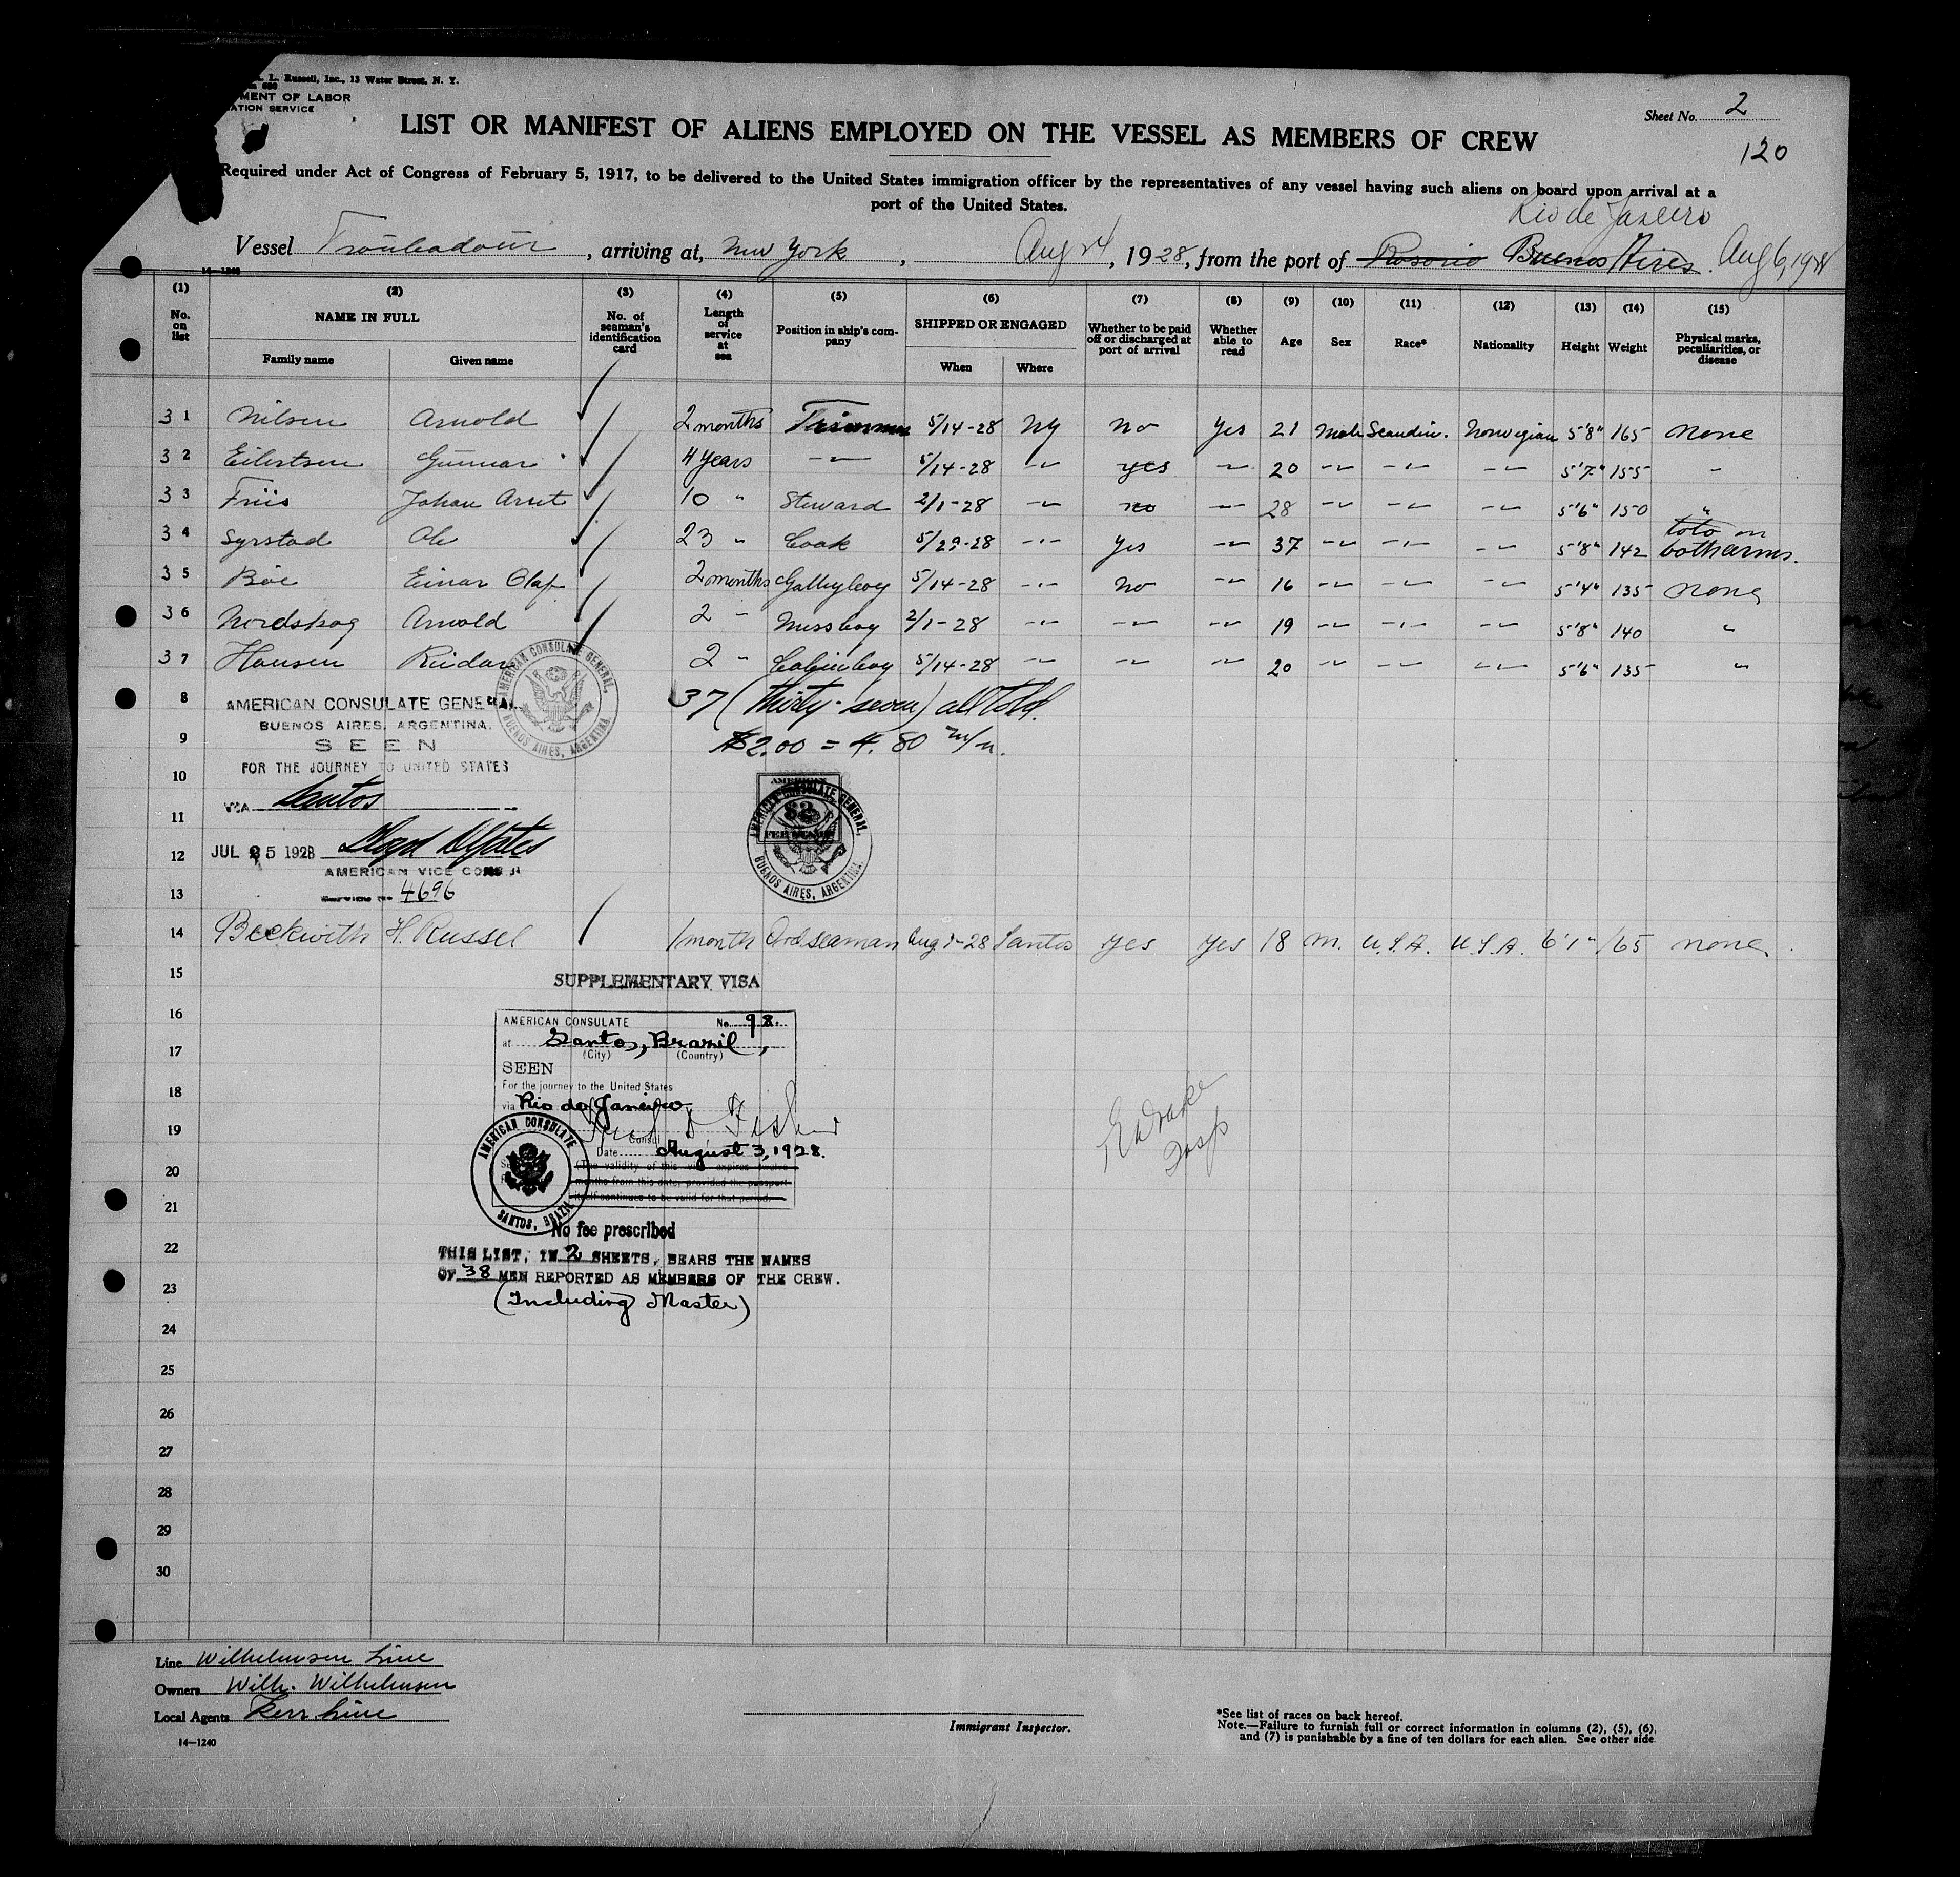 L. Russell, Inc., 13 Water Street, N. Y.
680
MENT OF LABOR
ATION SERVICE
Sheet No. 2
120
LIST OR MANIFEST OF ALIENS EMPLOYED ON THE VESSEL AS MEMBERS OF CREW
Required under Act of Congress of February 5, 1917, to be delivered to the United States immigration officer by the representatives of any vessel having such aliens on board upon arrival at a
port of the United States.
Rio de Janeiro
Vessel Troubadour, arriving at, New York, Aug 24, 1928, from the port of Rosario Buenos Aires. Aug 6, 1928
14—1240
(1) (2) (3) (4) (5) (6) (7) (8) (9) (10) (11) (12) (13) (14) (15)
No. on list NAME IN FULL Family name Given name No. of seaman's identification card Length of service at sea Position in ship's company SHIPPED OR ENGAGED When Where Whether to be paid off or discharged at port of arrival Whether able to read Age Sex Race* Nationality Height Weight Physical marks, peculiarities, or disease
31 Nilsen Arnold 2 months Trimmer 5/14-28 NY no yes 21 male Scandin. Norwegian 5'8" 165 none
32 Eilertsen Gunnar 4 years -"- 5/14-28 -"- yes -"- 20 -"- -"- -"- 5'7" 155 -
33 Friis Johan Arnt 10 " Steward 2/1-28 -"- no -"- 28 -"- -"- -"- 5'6" 150 "
34 Syrstad Ole 23 " Cook 5/29-28 -"- yes -"- 37 -"- -"- -"- 5'8" 142 toto on both arms.
35 Böe Einar Olaf 2 months Galleyboy 5/14-28 -"- no -"- 16 -"- -"- -"- 5'4" 135 none
36 Nordskog Arnold 2 " Messboy 2/1-28 -"- -"- -"- 19 -"- -"- -"- 5'8" 140 "
37 Hansen Reidar 2 " Cabinboy 5/14-28 -"- -"- -"- 20 -"- -"- -"- 5'6" 135 "
8 AMERICAN CONSULATE GENERAL 37 (Thirty-seven) all told.
BUENOS AIRES, ARGENTINA.
9 SEEN $2.00 = 4.80 m/n.
AMERICAN CONSULATE GENERAL, BUENOS AIRES, ARGENTINA
FOR THE JOURNEY TO UNITED STATES
10
VIA Santos
AMERICAN $2 FEE STAMP
AMERICAN CONSULATE GENERAL, BUENOS AIRES, ARGENTINA.
11
12 JUL 25 1928
AMERICAN VICE CONSUL
13 Service No 4696
14 Beckwith H. Russel 1 month Ord seaman Aug 1-28 Santos yes yes 18 m. U.S.A. U.S.A. 6'1" 165 none.
15 SUPPLEMENTARY VISA
16 AMERICAN CONSULATE No. 98.
at Santos, Brazil,
17 (City) (Country)
SEEN
18 For the journey to the United States
via Rio de Janeiro
19 Fisher
Consul
Date August 3, 1928.
20 (The validity of this visa expires twelve
months from this date, provided the passport
21 itself continues to be valid for that period.
AMERICAN CONSULATE SANTOS, BRAZIL
No fee prescribed
22 THIS LIST, IN 2 SHEETS, BEARS THE NAMES
OF 38 MEN REPORTED AS MEMBERS OF THE CREW.
23 (Including Master)
Drake
Insp
24
25
26
27
28
29
30
Line Wilhelmsen Line
Owners Wilh. Wilhelmsen
Local Agents Kerr Line
14—1240
Immigrant Inspector.
*See list of races on back hereof.
Note.—Failure to furnish full or correct information in columns (2), (5), (6),
and (7) is punishable by a fine of ten dollars for each alien. See other side.